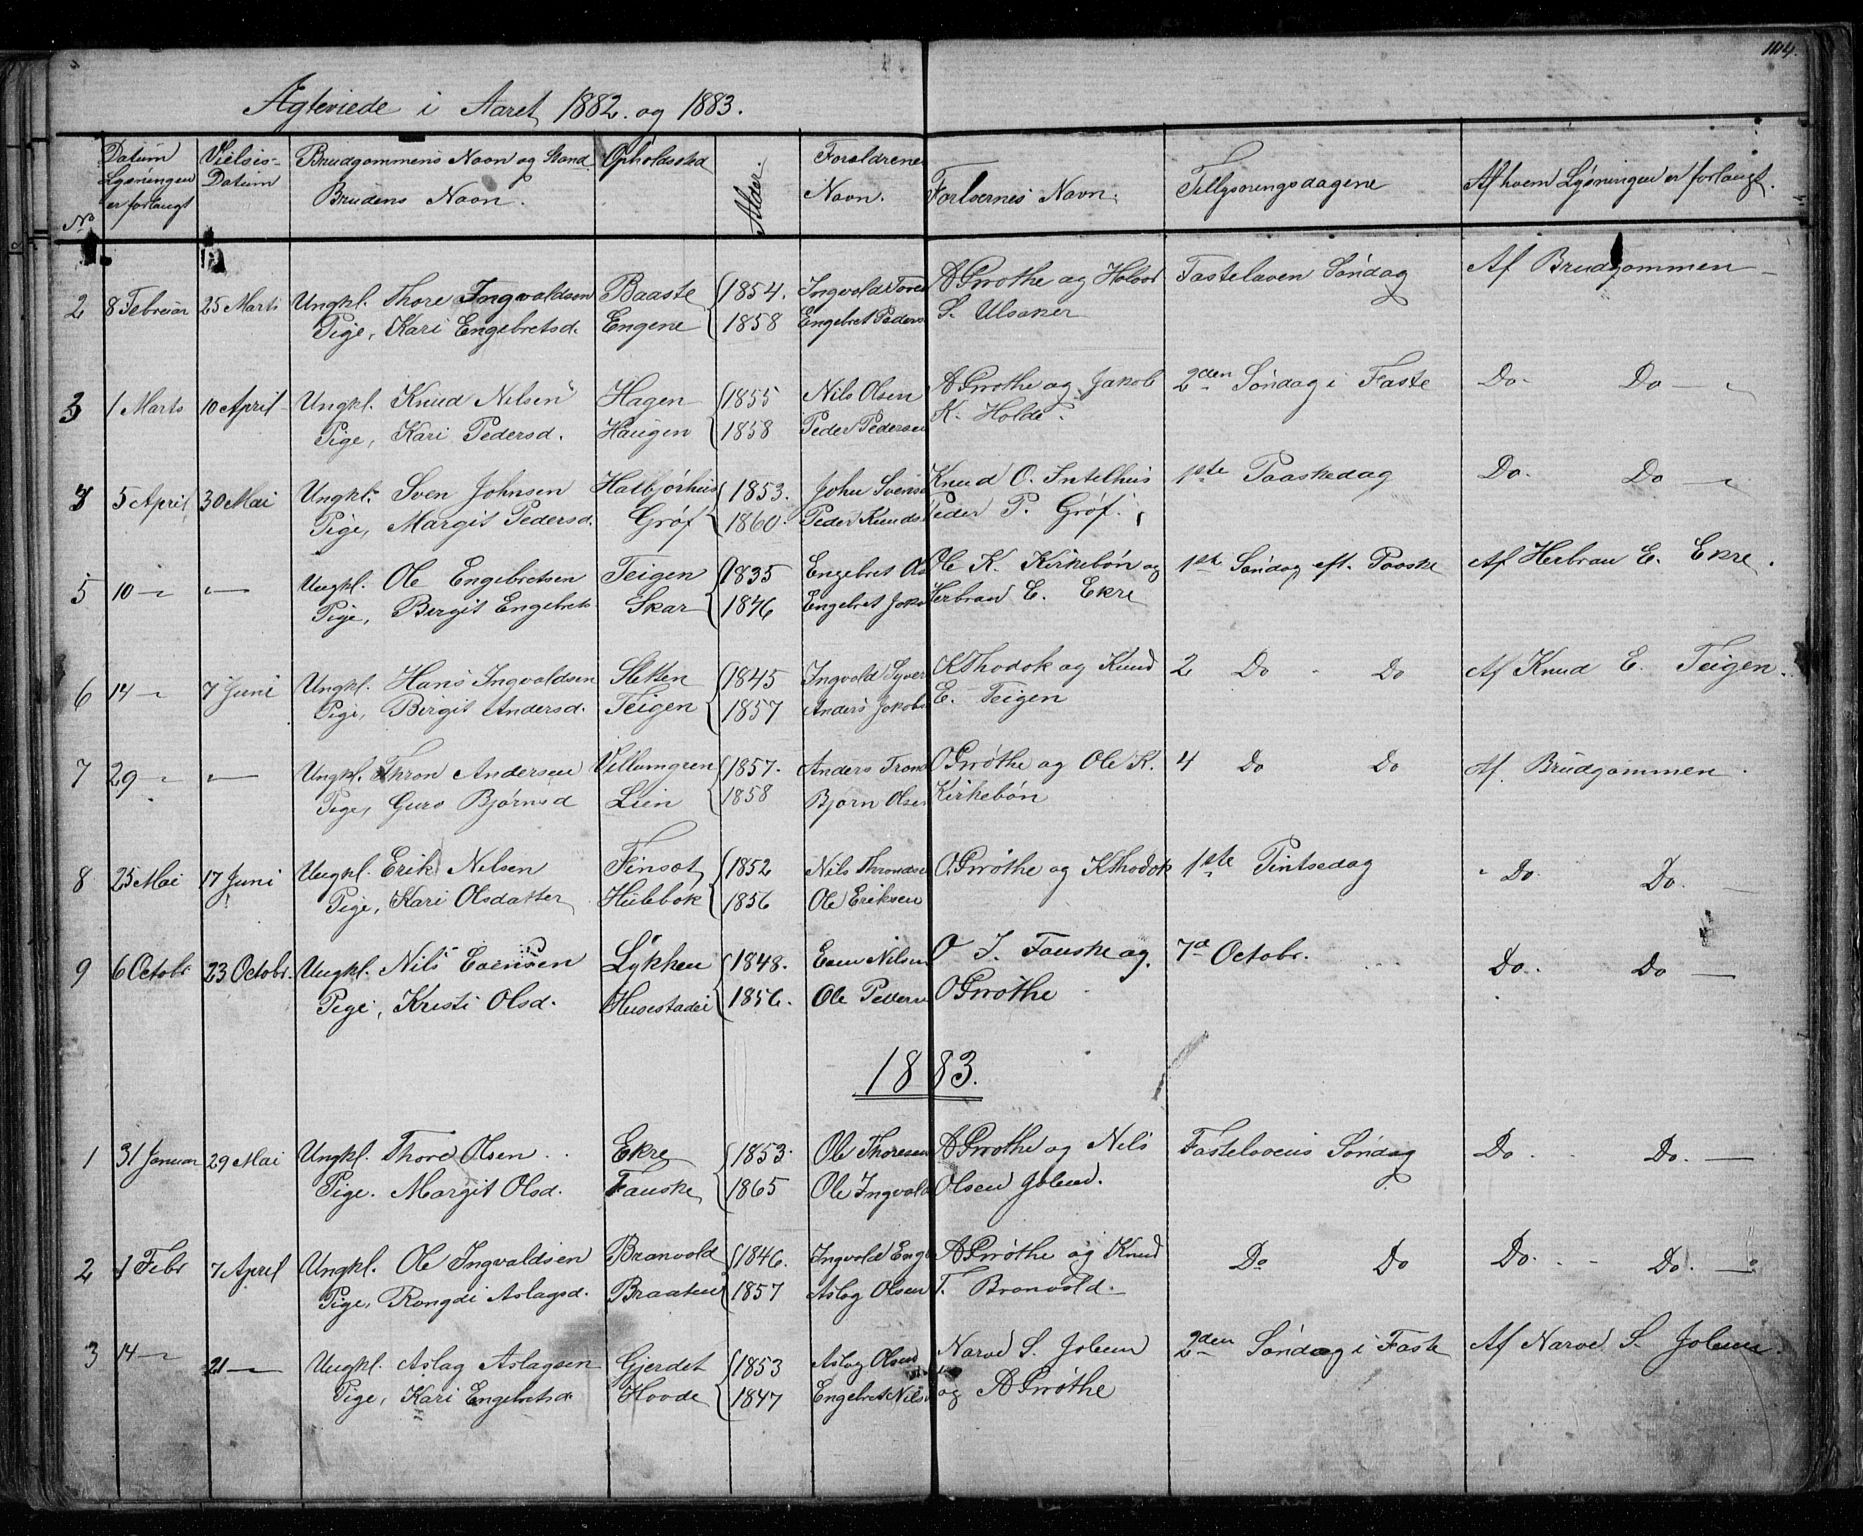 104.
Ægteviede i Aaret 1882. og 1883.
No Datum Lysningen er forlangt Vielses-Datum Brudgommens Navn og Stand Brudens Navn. Opholdssted Alder. Forældrenes Navn. Forlovernes Navn. Tillysningsdagene Af hvem Lysningen er forlangt.
2 8 Februar 25 Marts Ungkl. Thore Ingvaldsen Baaste 1854. Ingvold Tores A Grøthe og Holvor Fastelaven Søndag Af Brudgommen
Pige, Kari Engebretsd. Engene 1858 Engebret Peders S. Ulsaker
3 1 Marts 10 April Ungkl. Knud Nilsen Hagen 1855 Nils Olsen A Grøthe og Jakob 2den Søndag i Faste Do Do
Pige, Kari Pedersd. Haugen 1858 Peder Pedersen K. Holde.
5 April 30 Mai Ungkl. Sven Johnsen Halbjørhus 1853. John Svens Knud O. Intelhus 1ste Paaskedag Do. Do
Pige, Margit Pedersd. Grøf 1860. Peder Knuds Peder P. Grøf.
5 10 – – Ungkl. Ole Engebretsen Teigen 1835 Engebret Ols Ole K. Kirkebøn og 1ste Søndag eft. Paaske Af Herbran E. Ekre.
Pige, Bergit Engebrets Skar 1846 Engebret Jako Herbrand E. Ekre
6 14 – 7 Juni Ungkl. Hans Ingvaldsen Sletten 1845 Ingvold Syver K Thodok og Knud 2 Do Do Af Knud E. Teigen.
Pige, Birgit Andersd. Teigen 1857 Anders Jakobs E. Teigen
7 29 – – Ungkl. Thron Andersen Villumgren 1857. Anders Tron O Grøthe og Ole K. 4 Do Do Af Brudgommen.
Pige, Guro Bjørnsd Lien 1858 Bjørn Olsen Kirkebøn
8 25 Mai 17 Juni Ungkl. Erik Nilsen Finsøt 1852 Nils Throndsen O. Grøthe og K Thodok 1ste Pintsedag Do Do.
Pige, Kari Olsdatter Hulebok 1856 Ole Eriksen
9 6 Octobr 23 Octobr. Ungkl. Nils Evensen Lykken 1848. Even Nilsen O J. Fauske og 7d Octobr. Do. Do
Pige, Kristi Olsd. Husestadei 1856. Ole Peders O Grøthe
1883.
1 31 Januar 29 Mai Ungkl. Thore Olsen Ekre 1853. Ole Thoresen A Grøthe og Nils Fastelavens Søndag Do. Do.
Pige. Margit Olsd. Fauske 1865 Ole Ingvald Olsen Jolem.
2 1 Febr 7 April Ungkl. Ole Ingvaldsen Branvold 1846. Ingvold Eng A Grøthe og Knud Do Do Do. Do.
Pige, Rongdi Aslagsd. Braaten 1857 Aslag Olsen T. Branvold.
3 14 – 21 – Ungkl. Aslag Aslagsen Gjerdet 1853 Aslag Olsen Narve S. Jolem 2den Søndag i Faste Af Narve S. Jolem.
Pige, Kari Engebretsd. Hoode 1847 Engebret Nils og A Grøthe